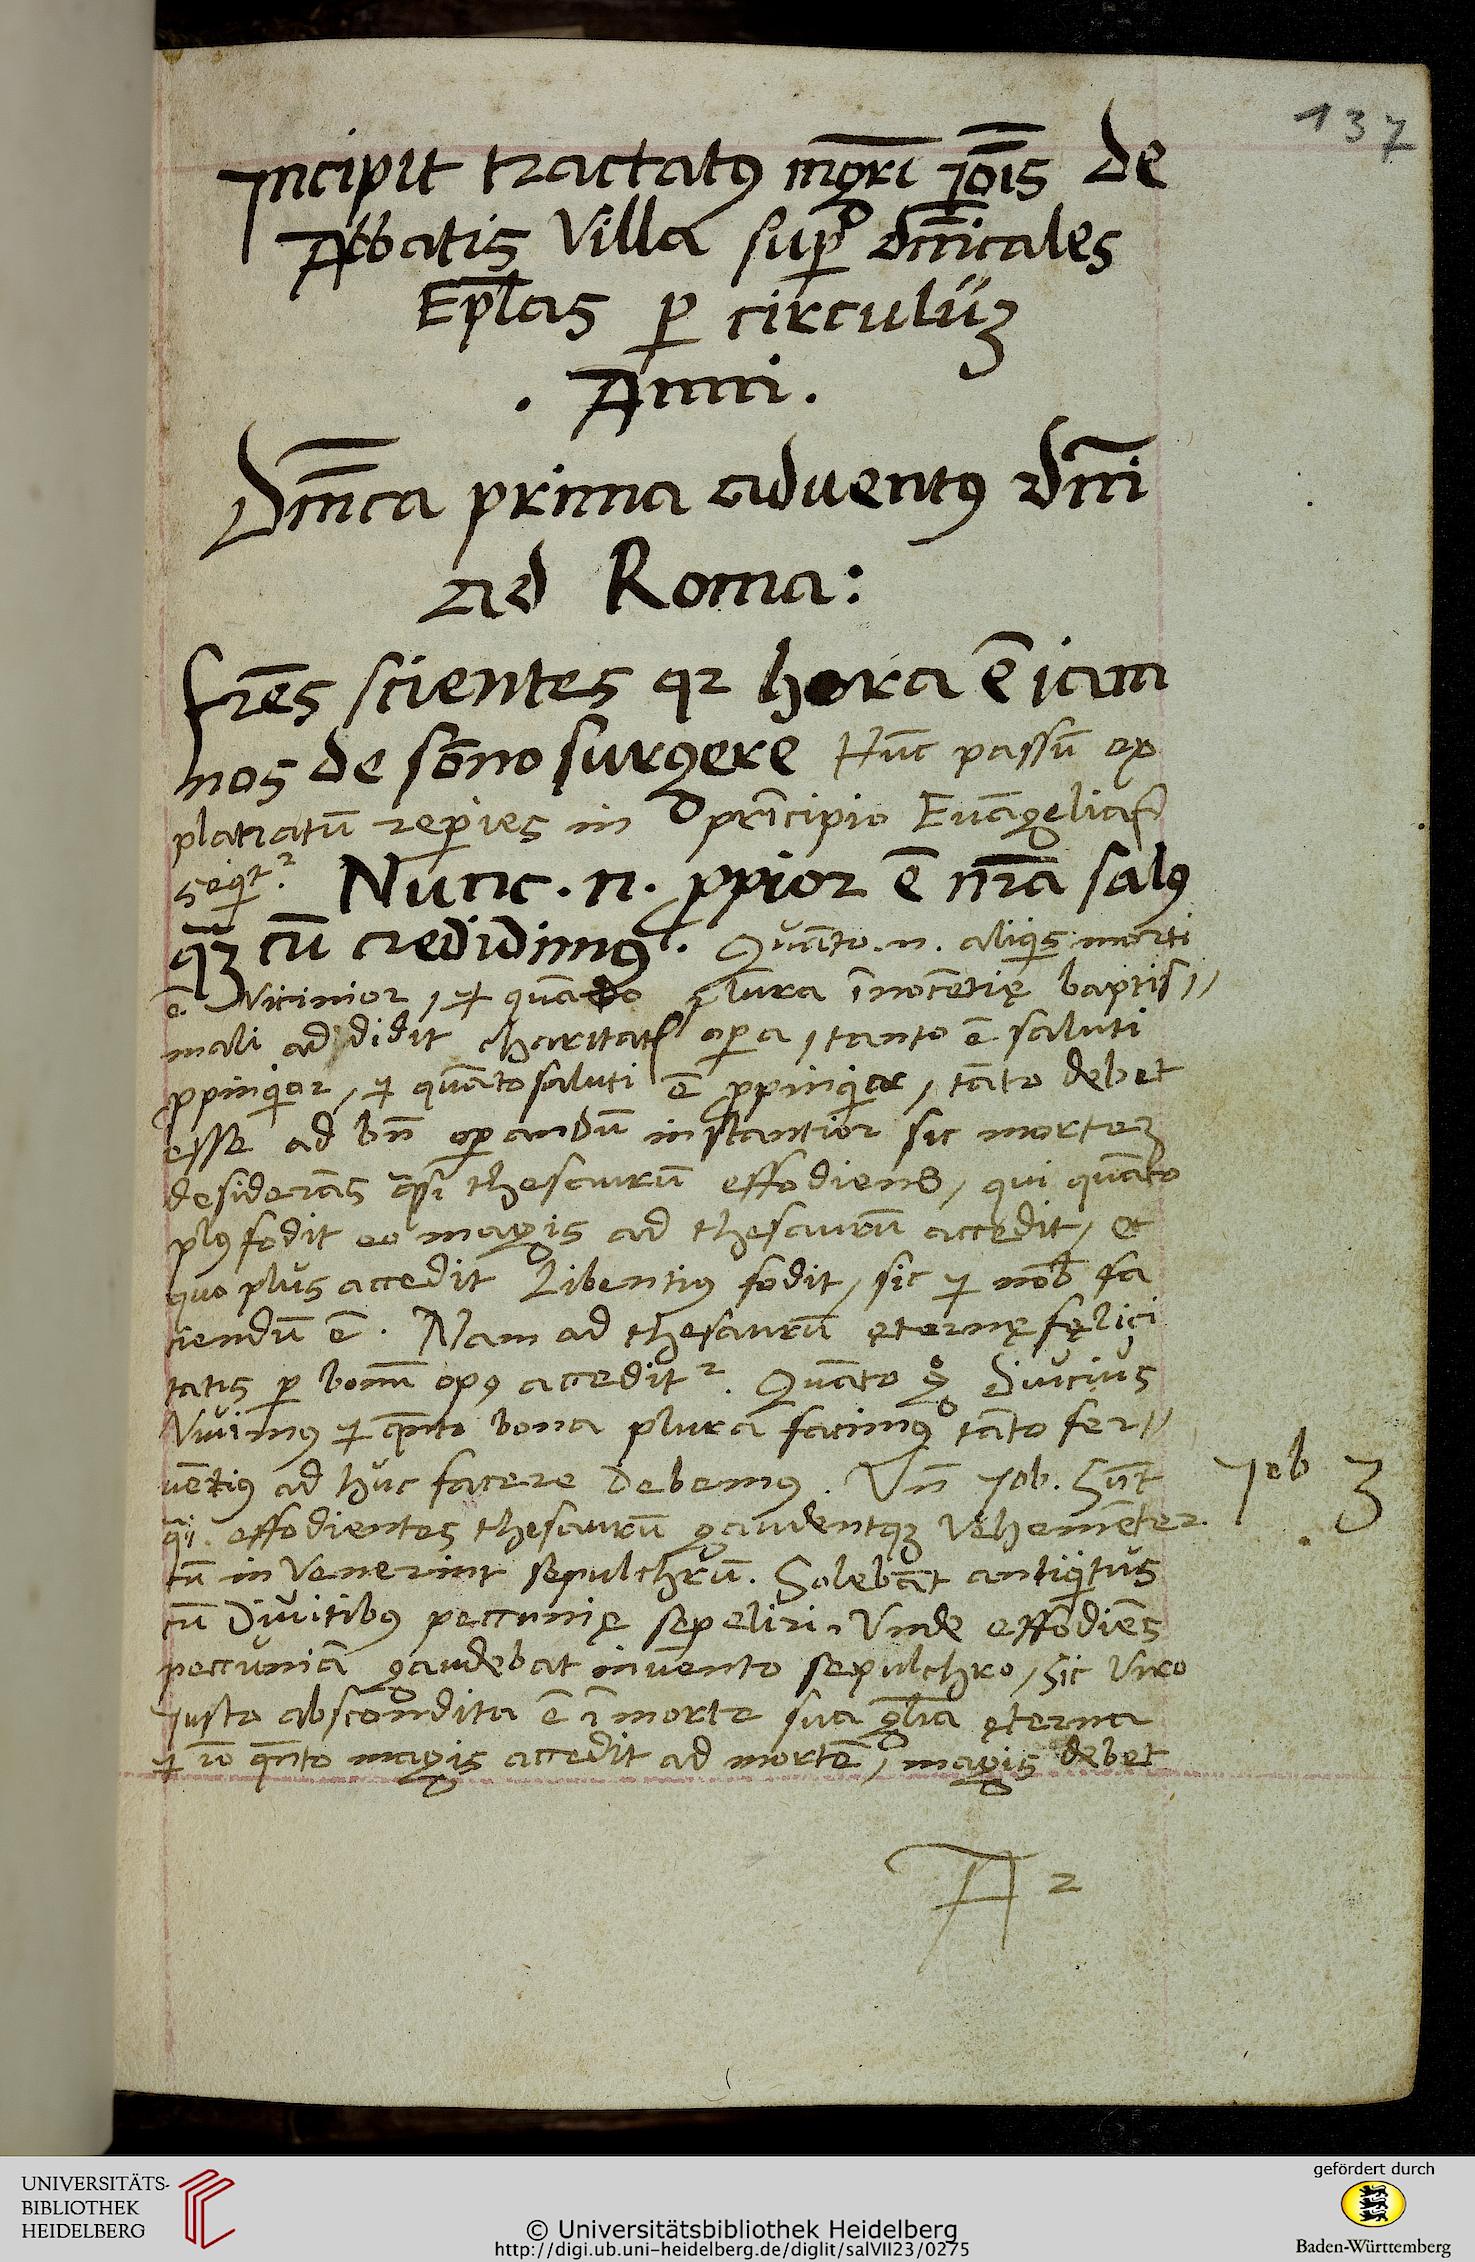 137
Incipit tractatꝰ mgr̄i Joīs de
Abbatis Villa suꝑ dn̄icales
Ep̄las ꝑ circulūꝫ
. Anni .
Dn̄ica prima aduentꝰ dn̄i
ad Roma:
Fr̄es scientes qꝛ hora ē iam
nos de sōno surgere Hūc passū ex
platiatū reperies in principio Euāgelia
seqͥtᷣ. Nunc .n. ꝓpior ē nr̄a salꝰ
qꝫ̄ cū credidimꝰ. Quāto .n. aliqͥs morti
ē. Vicinior, ⁊ quāto plura īnocētię baptis//
mali addidit charitatꝭ oꝑa, tanto ē saluti
ꝓpinqͥor, ⁊ quāto saluti ē ꝓpinqͥor, tāto debet
esse ad bn̄ oꝑandū instantior sic morteꝫ
desiderās qͣsi thesaurū effodiens, qui quāto
plꝰ fodit eo magis ad thesaurū accedit, et
quo plus accedit Libentiꝰ fodit, sic ⁊ nob̄ fa
ciendū ē. Nam ad thesaurū ęternę fęlici
tatis ꝑ bonū opꝰ acceditᷣ. Quāto gͦ Diucius
Viuimꝰ ⁊ qͣnto bona plura facimꝰ tāto fer//
uētiꝰ adhuc facere debemꝰ. Vn̄ Job. Sūt
Job 3
qͣi. effodientes thesaurū gaudentqꝫ Vehemēter.
cū inVenerint sepulchrū. Solebāt antiqͥtus
cū Diuitibꝰ peccunię sepeliri. Vnde effodiēs
peccuniā gaudebat inuento sepulchro, sic Viro
Justo abscondita ē ī morte sua gl̄ia ęterna
⁊ iō qͣnto magis accedit ad mortē, magis debet
A 2
UNIVERSITÄTS-
BIBLIOTHEK
HEIDELBERG
© Universitätsbibliothek Heidelberg
http://digi.ub.uni-heidelberg.de/diglit/salVII23/0275
gefördert durch
Baden-Württemberg